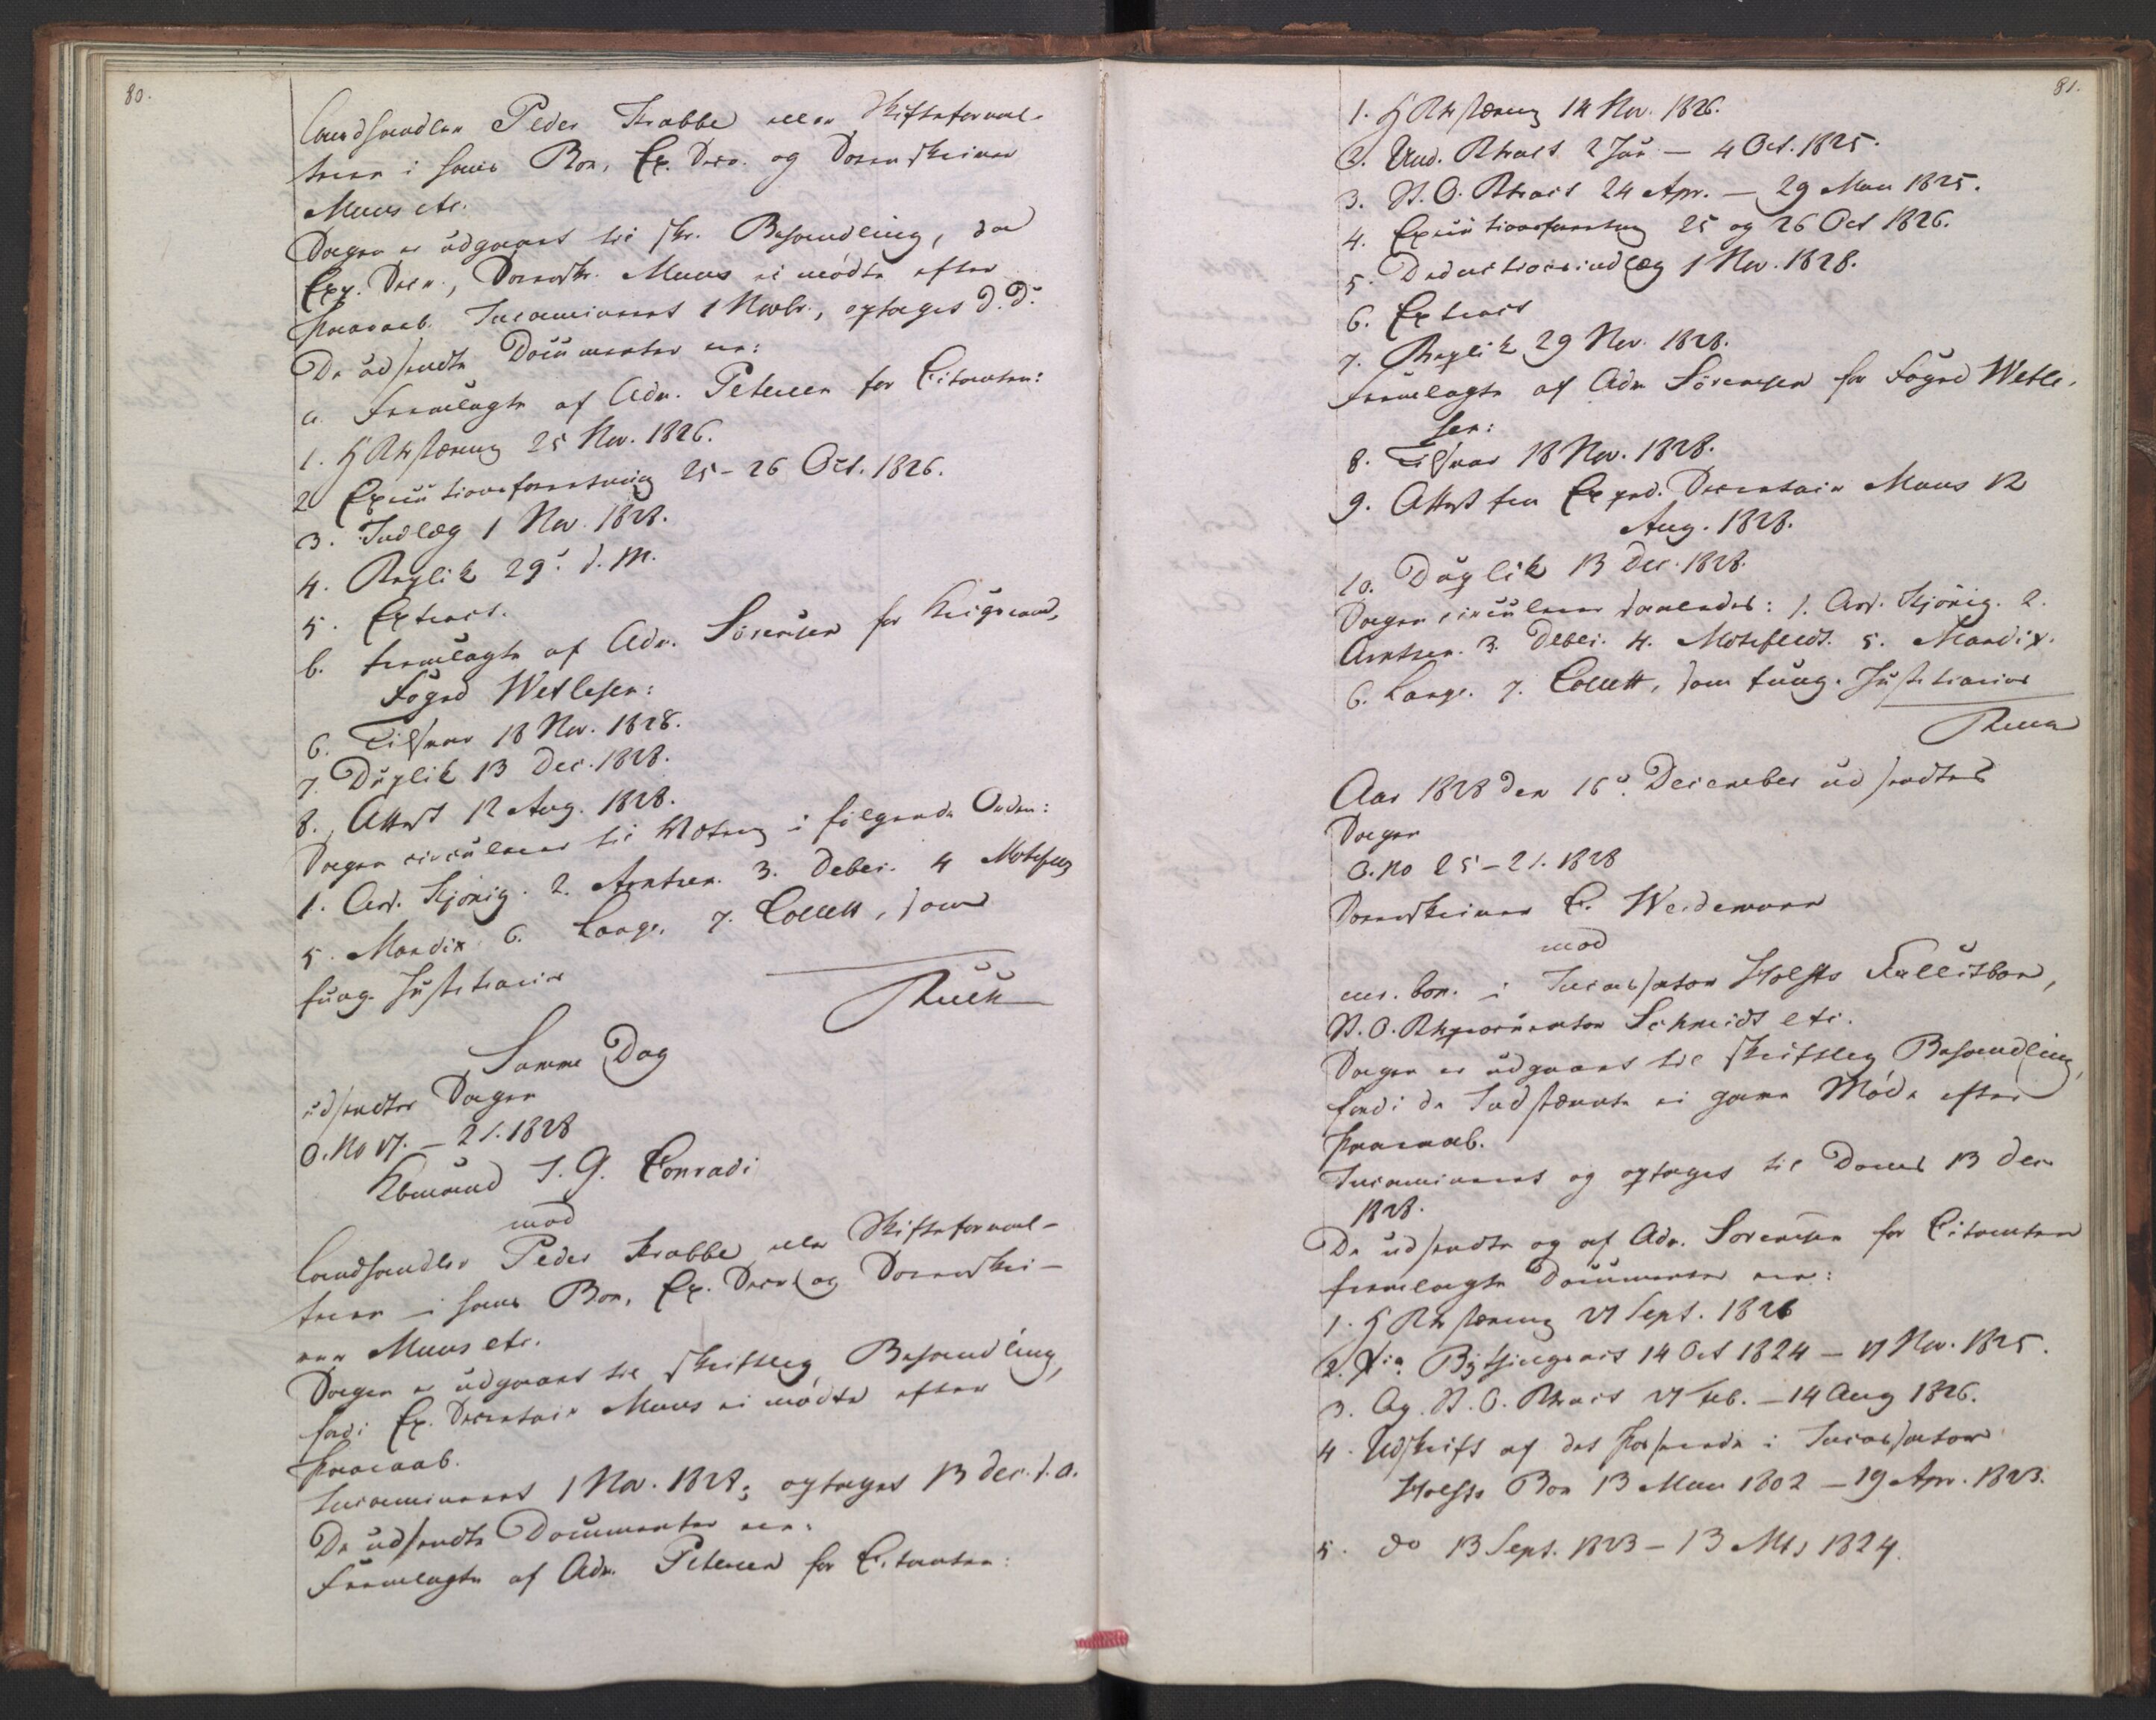 80.
Landhandler Peder Krabbe eller Skifteforval-
teren i hans Boe, Ex. Secr. og Sorenskriver
Muus etc.
Sagen er udgaaet til skr. Behandling, da
Exp. Secr., Sorenskr. Muus ei mødte efter
Paaraab. Incamineret 1 Novbr., optaget d. D.
De udsendte Documenter ere:
a. Fremlagte af Adv. Petersen for Citanten:
1. H Rts stævning 25 Nov. 1826.
2 Executionsforretning 25 – 26 Oct. 1826.
3. Indlæg 1 Nov. 1828.
4. Replik 29. s. M.
5. Extract.
b. fremlagte af Adv. Sörensen for Krigsraad,
Foged Wetlesen:
6. Tilsvar 18 Nov. 1828.
7. Duplik 13 Dec. 1828.
8. Attest 12 Aug. 1828.
Sagen circulerer til Votering i følgende Orden:
1. Ass. Kjönig. 2. Arntzen. 3. Debes. 4 Motzfeldt
5. Mandix 6. Lange. 7. Collett, som
fung. Justitiarius
Samme Dag
udsendtes Sagen
O. No 17. – 2/. 1828
Kbmand J. G. Conradi
mod
Landhandler Peder Krabbe eller Skifteforval-
teren i hans Boe, Ex. Secr. og Sorenskri-
ver Muus etc.
Sagen er udgaaet til skriftlig Behandling,
fordi Ex. Secretair Muus ei mødte efter
Paaraab.
Incamineret 1 Nov. 1828; optaget 13 Dec. s. A.
De udsendte Documenter ere:
Fremlagte af Adv. Petersen for Citanten:
81.
1. H Rts stævning 14 Nov. 1826.
2. Und. Rtsact 2 Jan – 4 Oct. 1825.
3. St. O. Rtsact 24 Apr. – 29 Mai 1825.
4. Executionsforretning 25 og 26 Oct 1826.
5. Deductionsindlæg 1 Nov. 1828.
6. Extract
7. Replik 29 Nov. 1828.
Fremlagte af Adv Sörensen for Foged Wetle-
sen:
8. Tilsvar 18 Nov. 1828.
9. Attest fra Exped. Secretair Muus 12
Aug. 1828.
10. Duplik 13 Dec. 1828.
Sagen circulerer saaledes: 1. Ass. Kjönig. 2.
Arntzen. 3. Debes. 4. Motzfeldt. 5. Mandix.
6. Lange. 7. Collett, som fung. Justitiarius
Aar 1828 den 16. December udsendtes
Sagen
O. No 25 – 2/. 1828
Sorenskriver C. Weidemann
mod
i Incassator Holsts Fallitboe,
St. O. Rtsprocurator Schmidt etc.
Sagen er udgaaet til skriftlig Behandling,
fordi de Indstævnte ei gave Møde efter
Paaraab.
Incamineret og optaget til Doms 13 Dec
1828.
De udsendte og af Adv. Sörensen for Citanten
fremlagte Documenter ere:
1. H Rts stævning 27 Sept. 1826
2. Bytingsact 14 Oct 1824 – 17 Nov. 1825.
3. Ag. St. O. Rtsact 27 Feb. – 14 Aug 1826.
4. Udskrift af det Passerede i Incassator
Holsts Boe 13 Mai 1802 – 19 Apr. 1823.
5. do 13 Sept. 1823 – 13 Mts 1824.